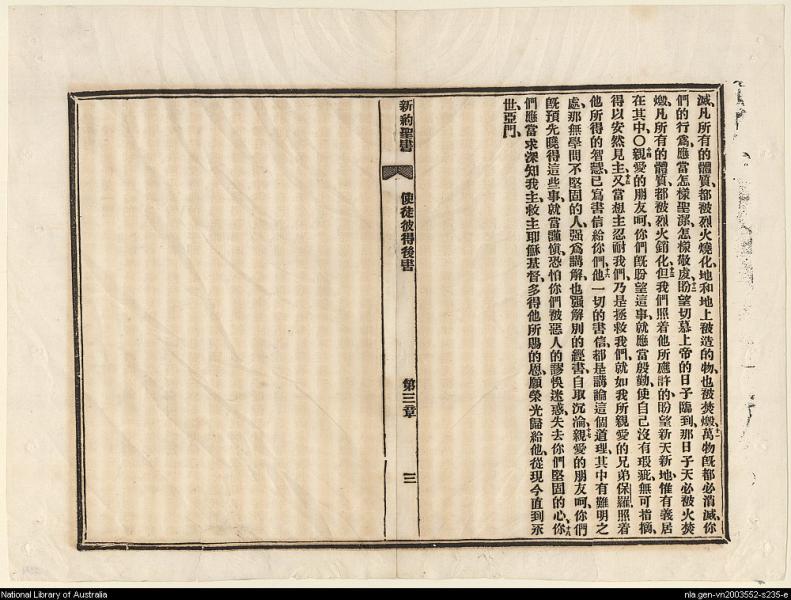 滅、凡所有的體質、都被烈火燒化、地和地上被造的物、也被焚燬、十一萬物旣都必消滅、你
們的行爲、應當怎樣聖潔、怎樣敬虔、十二盼望切慕上帝的日子臨到、那日子天必被火焚
燬、凡所有的體質、都被烈火銷化、十三但我們照着他所應許的、盼望新天新地、惟有義居
在其中、〇十四親愛的朋友呵、你們旣盼望這事、就應當殷勤、使自己沒有瑕疵、無可指摘、
得以安然見主、十五又當想主忍耐我們、乃是拯救我們、就如我所親愛的兄弟保羅、照着
他所得的智慧、已寫書信給你們、十六他一切的書信、都是講論這個道理、其中有難明之
處、那無學問不堅固的人、强爲講解、也强解別的經書、自取沉淪、十七親愛的朋友呵、你們
旣預先曉得這些事、就當謹愼、恐怕你們被惡人的謬悞迷惑、失去你們堅固的心、十八你
們應當求深知我主、救主耶穌基督、多得他所賜的恩、願榮光歸給他、從現今直到永
世、亞門、
新約聖書 使徒彼得後書 第三章 三
National Library of Australia
nla.gen-vn2003552-s235-e